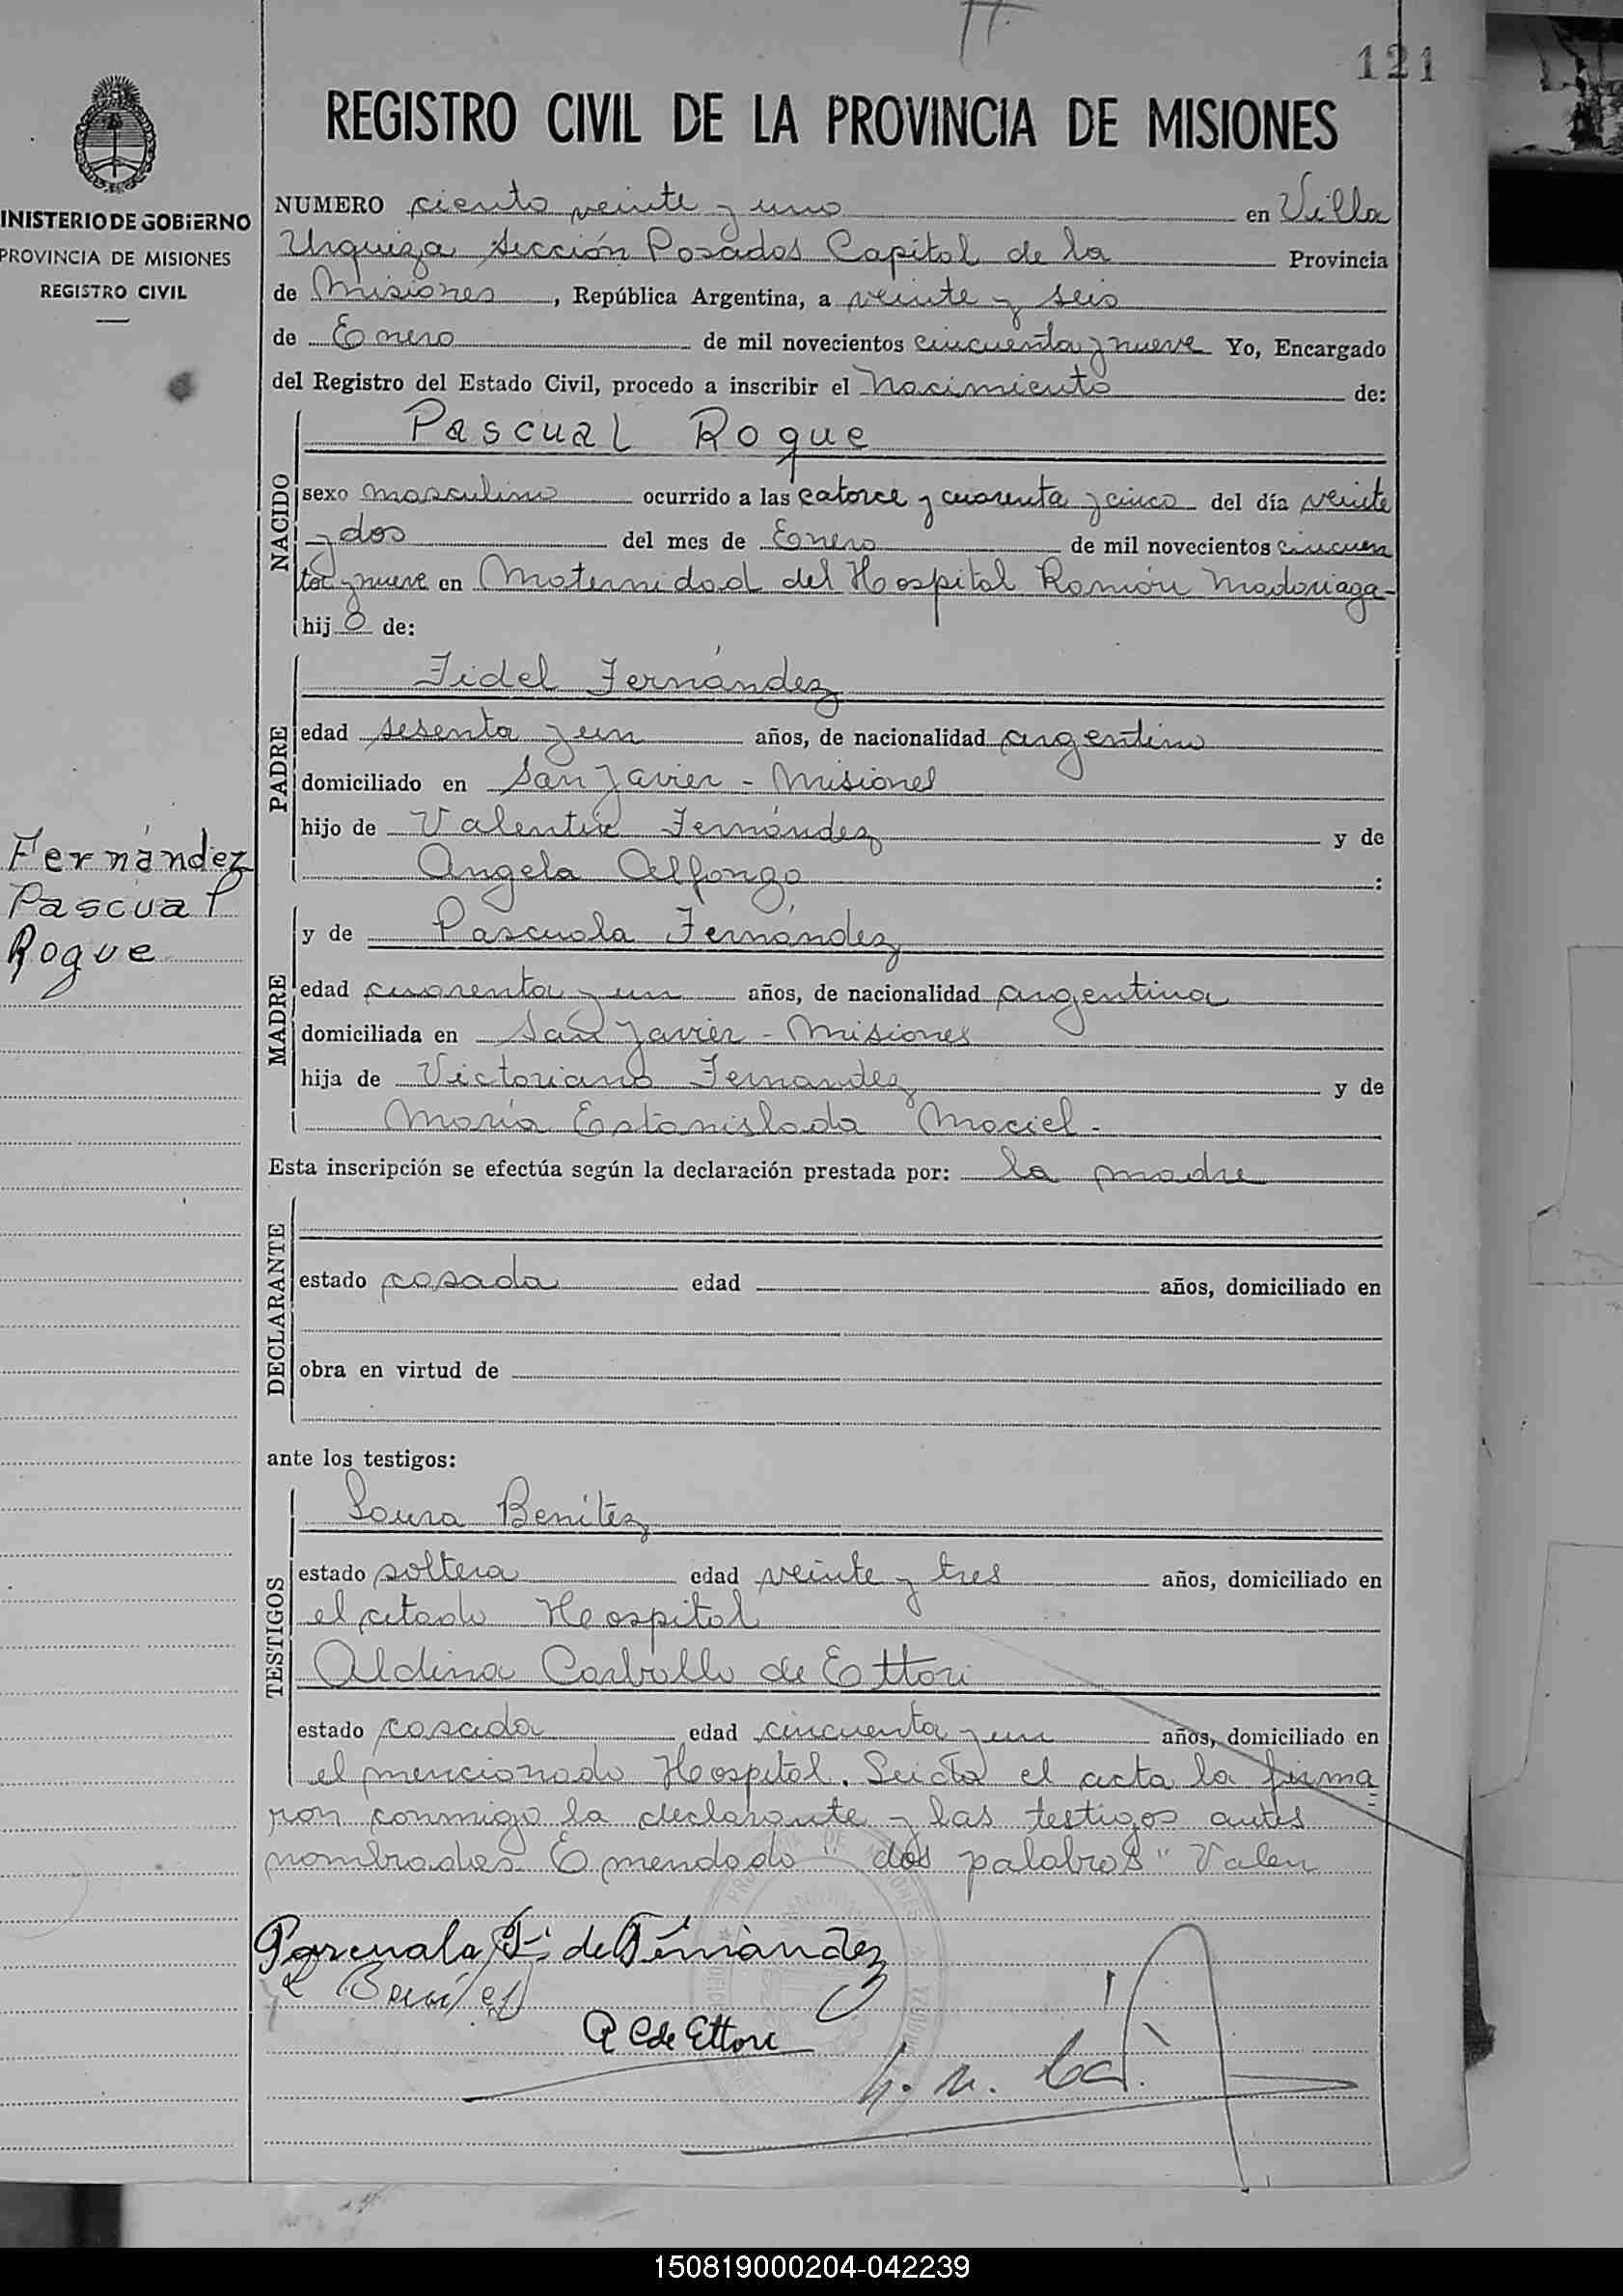 121
REGISTRO CIVIL DE LA PROVINCIA DE MISIONES
INISTERIO DE GOBIERNO
PROVINCIA DE MISIONES
REGISTRO CIVIL
NUMERO ciento veinte y uno en Villa
Urquiza sección Posadas Capital de la Provincia
de Misiones, República Argentina, a veinte y seis
de Enero de mil novecientos cincuenta y nueve Yo, Encargado
del Registro del Estado Civil, procedo a inscribir el Nacimiento de:
NACIDO
Pascual Roque
sexo masculino ocurrido a las catorce y cuarenta y cinco del día veinte
y dos del mes de Enero de mil novecientos cincuen
ta y nueve en Maternidad del Hospital Ramón Madariaga-
hijo de:
PADRE
Fidel Fernández
edad sesenta y un años, de nacionalidad argentino
domiciliado en San Javier - Misiones
hijo de Valentin Fernández y de
Angela Alfonzo :
Fernández
Pascual
Roque
MADRE
y de Pascuala Fernández
edad cuarenta y un años, de nacionalidad argentina
domiciliada en San Javier - Misiones
hija de Victoriano Fernandez y de
María Estanislada Maciel.-
Esta inscripción se efectúa según la declaración prestada por: la madre
DECLARANTE
estado casada edad años, domiciliado en
obra en virtud de
ante los testigos:
TESTIGOS
Laura Benítez
estado soltera edad veinte y tres años, domiciliado en
el citado Hospital
Aldina Carballo de Ettori
estado casada edad cincuenta y un años, domiciliado en
el mencionado Hospital. Leida el acta la firma
ron conmigo la declarante y las testigos antes
nombradas. Emendado "dos palabras" Valen
Pascuala F. de Fernández
L Benítez
A C de Ettori
150819000204-042239